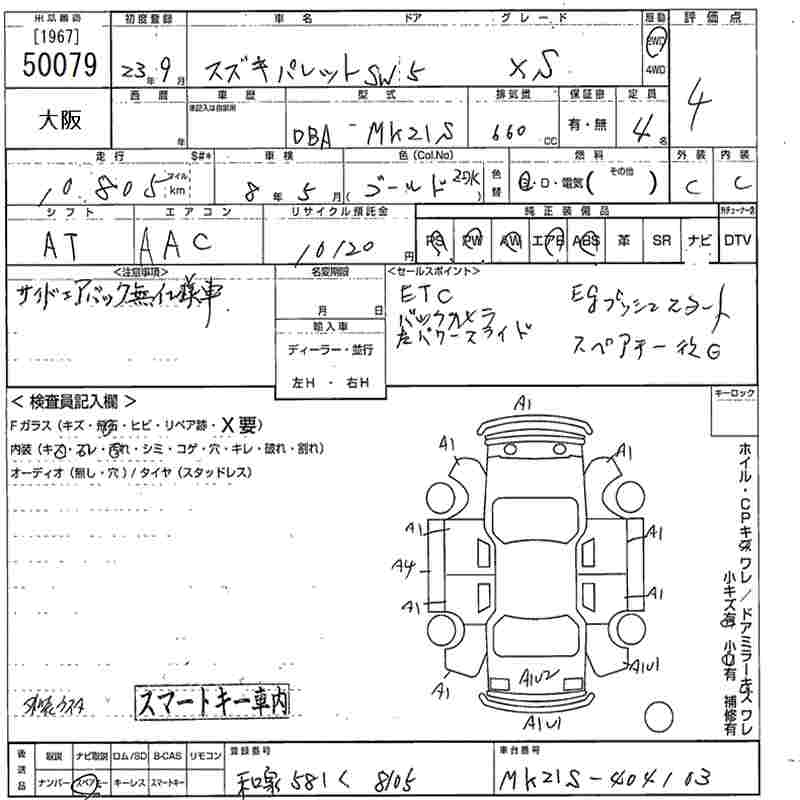 [1967]
50079
大阪
初度登録 車名 ドア グレード 駆動 評価点
23年9月 スズキパレットSW 5 XS 2WD 4WD
4
西暦 車歴 型式 排気量 保証書 定員
年 DBA - MK21S 660cc 有・無 4名
走行 S#* 車検 色(Col.No) 色替 燃料 外装 内装
10,805 マイル km 8年5月 (ゴールド ZQK) ・D・電気( その他 ) C C
シフト エアコン リサイクル預託金 純正装備品
AT AAC 10120円 PS PW AW エアB ABS 革 SR ナビ DTV
<注意事項> 名変期限 <セールスポイント>
サイドエアバック無仕様車
月 日
輸入車
ディーラー・並行
左H ・ 右H
ETC Egプッシュスタート
バックカメラ
左パワースライド
< 検査員記入欄 >
Fガラス(キズ・飛石・ヒビ・リペア跡・X要)
内装(キズ・スレ・汚れ・シミ・コゲ・穴・キレ・破れ・割れ)
オーディオ(無し・穴)/タイヤ(スタッドレス)
キーロック
A1
A1 A1
A1 A1
A4
A1 A1
A1 A1U1
A1U2
A1U1
ホイル・CPキズ ワレ/ドアミラーキズ ワレ
小キズ有 小凹有 補修有
スマートキー車内
後送品 取説 ナビ取説 ロム/SD B-CAS リモコン
ナンバー スペアキー キーレス スマートキー
登録番号 車台番号
581く 8105 MK21S-404103